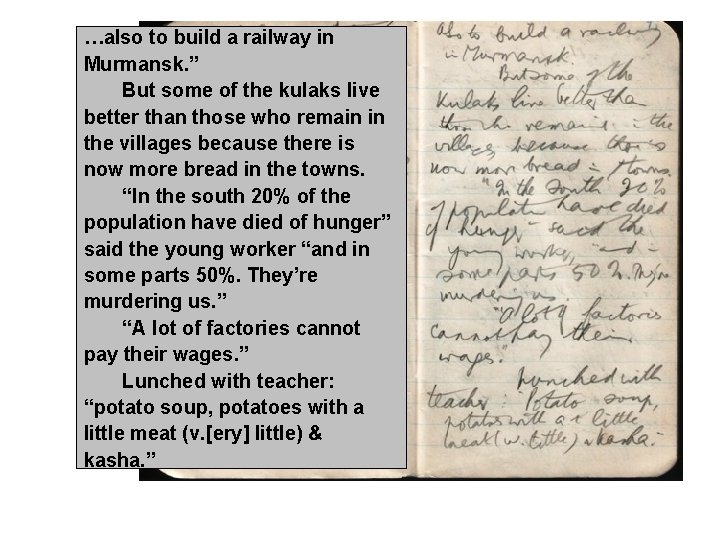 …also to build a railway in
Murmansk.”
But some of the kulaks live
better than those who remain in
the villages because there is
now more bread in the towns.
“In the south 20% of the
population have died of hunger”
said the young worker “and in
some parts 50%. They’re
murdering us.”
“A lot of factories cannot
pay their wages.”
Lunched with teacher:
“potato soup, potatoes with a
little meat (v.[ery] little) &
kasha.”
also to build a railway
in Murmansk.
But some of the
kulaks live better than
those who remain in the
villages, because there is
now more bread in towns.
"In the south 20%
of population have died
of hunger" said the
young worker, "and in
some parts 50%. They're
murdering us."
"A lot of factories
cannot pay their
wages."
Lunched with
teacher: Potato soup,
potatoes with a little
meat (v. little) & kasha.